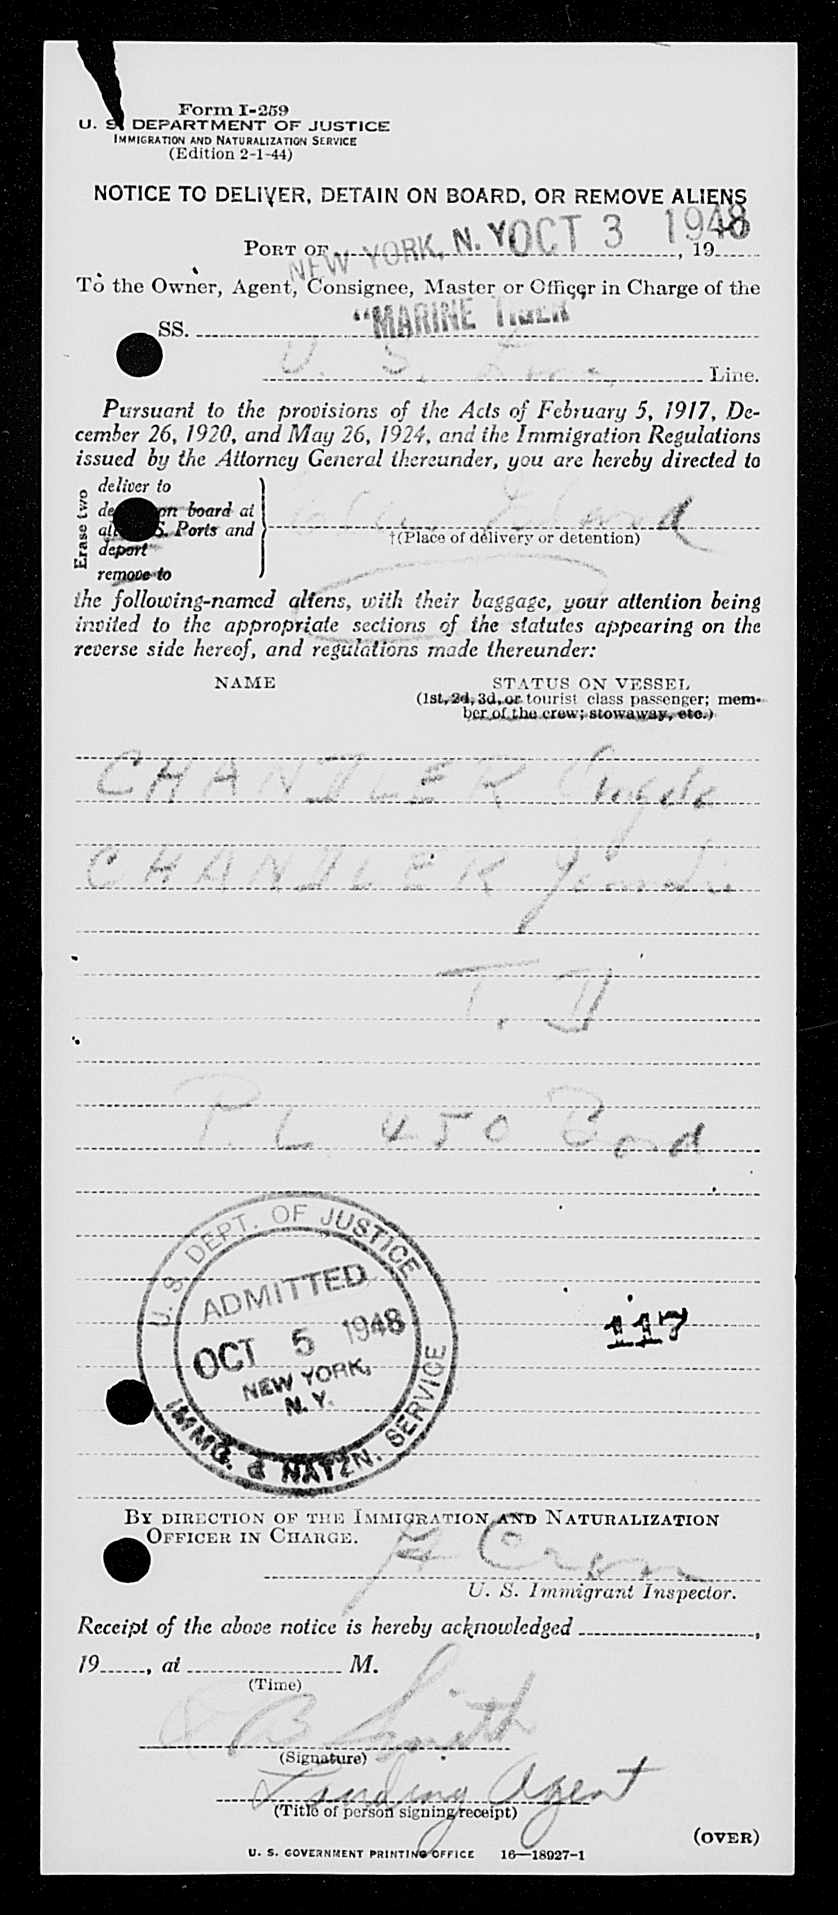 Form I-259
U. S. DEPARTMENT OF JUSTICE
IMMIGRATION AND NATURALIZATION SERVICE
(Edition 2-1-44)
NOTICE TO DELIVER, DETAIN ON BOARD, OR REMOVE ALIENS
PORT OF NEW YORK, N. Y. OCT 3 1948, 19
To the Owner, Agent, Consignee, Master or Officer in Charge of the
SS. "MARINE TIGER
U. S. Line.
Pursuant to the provisions of the Acts of February 5, 1917, De-
cember 26, 1920, and May 26, 1924, and the Immigration Regulations
issued by the Attorney General thereunder, you are hereby directed to
Erase two
deliver to
on board at
S. Ports and
deport
remove to
Island
†(Place of delivery or detention)
the following-named aliens, with their baggage, your attention being
invited to the appropriate sections of the statutes appearing on the
reverse side hereof, and regulations made thereunder:
NAME STATUS ON VESSEL
(1st, 2d, 3d, or tourist class passenger; mem-
ber of the crew; stowaway, etc.)
CHANDLER
CHANDLER
T. D
P. L 450 Bond
U. S. DEPT. OF JUSTICE
ADMITTED
OCT 5 1948
NEW YORK,
N. Y.
IMMG. & NATZN. SERVICE
117
BY DIRECTION OF THE IMMIGRATION AND NATURALIZATION
OFFICER IN CHARGE.
U. S. Immigrant Inspector.
Receipt of the above notice is hereby acknowledged ,
19 , at M.
(Time)
B Smith
(Signature)
Landing Agent
(Title of person signing receipt)
(OVER)
U. S. GOVERNMENT PRINTING OFFICE 16—18927-1